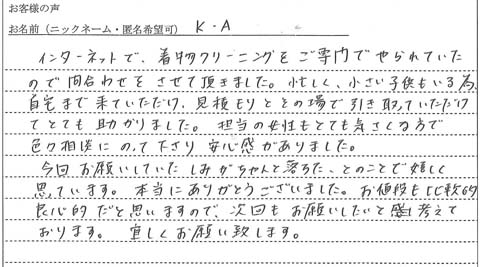 お客様の声
お名前(ニックネーム・匿名希望可) K・A
インターネットで、着物クリーニングをご専門でやられていた
ので問合わせをさせて頂きました。忙しく、小さい子供もいる為、
自宅まで来ていただけ、見積もりとその場で引き取っていただけ
てとても助かりました。担当の女性もとても気さくな方で
色々相談にのって下さり安心感がありました。
今回お願いしていたしみがちゃんと落ちた、とのことで嬉しく
思っています。本当にありがとうございました。お値段も比較的
良心的だと思いますので、次回もお願いしたいと考えて
おります。宜しくお願い致します。